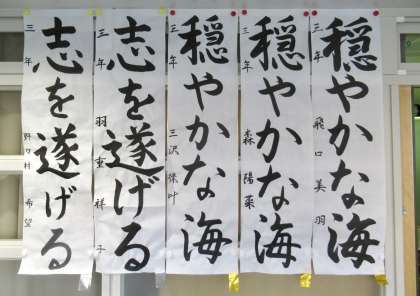 穏やかな海
三年 飛口美羽
穏やかな海
三年 森陽菜
穏やかな海
三年 三沢保叶
志を遂げる
三年 羽重祥子
志を遂げる
三年 野々村希望